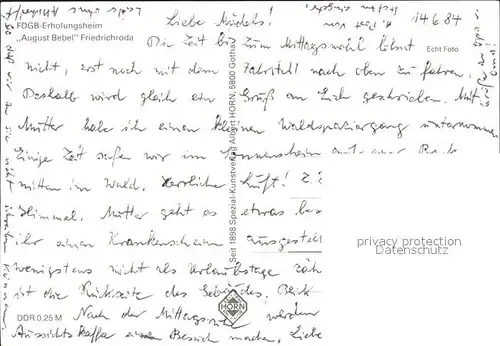 FDGB-Erholungsheim
„August Bebel“ Friedrichroda
Liebe Mädels!
14.6.84
Die Zeit bis zum Mittagsmahl lohnt
Echt Foto
nicht, erst noch mit dem Fahrstuhl nach oben zu fahren.
Deshalb wird gleich ein Gruß an Euch geschrieben. Mit
Mutter habe ich einen kleinen Waldspaziergang unternommen
Einige Zeit saßen wir im Sonnenschein auf einer Bank
mitten im Wald. Herrliche Luft!
Himmel. Mutter geht es etwas bes
ihr einen Krankenschein ausgestell
wenigstens nicht als Urlaubstage zäh
ist die Rückseite des Gebäudes, Blick
Nach der Mittagsruhe werden
Aussichts Kaffee einen Besuch machen. Liebe
DDR 0,25 M
Seit 1898 Spezial-Kunstverlag Albert HORN, 5800 Gotha
HORN
privacy protection
Datenschutz